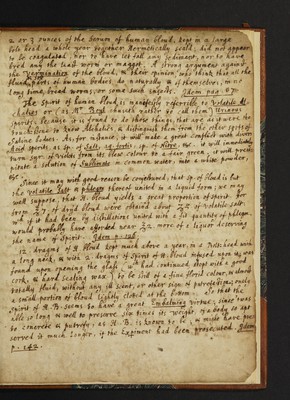 2 or 3 ounces of the Serum of human blood, kept in a large
bolt head a whole year together Hermetically seald, did not appear
to be coagulated, nor to have let fall any Sediment, nor to have
bred any the least worm or maggot. A strong argument against
the Vermination of the blood, & their opinion, who think that all the
fluid parts of human bodies do naturally & of themselves, in no
long time, breed worms, or some such insects. Idem pag.
The Spirit of human blood is manifestly referrible to Volatile Al-
chalies or (as Mr Boyle chuses rather to call them) Urinous
spirits; because it is found to do those things, that are as it were the
Touch-stone to know Alchalies, & distinguish them from the other sorts of
Saline Bodies. As, for instance, it will make a great conflict with divers
Acid spirits, as sp. of Salt, aq. fortis, sp. of Nitre, &c. it will immediately
turn syr. of violets from its blew colour to a fair green, it will præci-
pitate a solution of Sublimate in common water, into a white powder,
&c.
Since it may with good reason be conjectured, that sp. of blood is but
the volatile Salt & phlegm thereof united in a liquid form; we may
well suppose, that H. blood yields a great proportion of spirit
from of dryed blood were obtained above of volatile salt,
wch if it had been by distillations united with a fit quantity of phlegm,
would probably have afforded near more, of a liquor deserving
the name of spirit. Idem p.
12 dragms of H. blood kept much above a year, in a Bolt-head with
a long neck, & with 2 dragms of spirit of H. blood infused upon it, was
found upon opening the glass, wch had continued stopt with a good
cork, & hard sealing wax, to be still of a fine florid colour, & almost
totally fluid, without any ill scent, or other sign of putrefaction, only
a small portion of blood lightly clotted at the bottom. So that the
Spirit of H. B. seems to have a great Embalming virtue; since 'twas
able so long & well to preserve six times its weight, of a body so apt
to concrete & putrify, as H. B. is known to be; & might have pre-
served it much longer, if the Experiment had been prosecuted. Idem
p. 142.